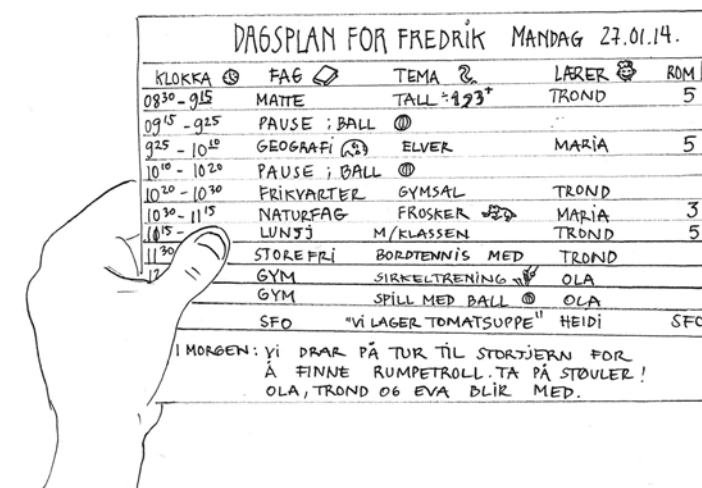 DAGSPLAN FOR FREDRIK MANDAG 27.01.14.
KLOKKA FAG TEMA LÆRER ROM
08³⁰ - 9¹⁵ MATTE TALL ÷123+ TROND 5
09¹⁵ - 9²⁵ PAUSE ; BALL
9²⁵ - 10¹⁰ GEOGRAFI ELVER MARIA 5
10¹⁰ - 10²⁰ PAUSE ; BALL
10²⁰ - 10³⁰ FRIKVARTER GYMSAL TROND
10³⁰ - 11¹⁵ NATURFAG FROSKER MARIA 3
11¹⁵ - LUNSJ M/KLASSEN TROND 5
11³⁰ STOREFRI BORDTENNIS MED TROND
12 GYM SIRKELTRENING OLA
GYM SPILL MED BALL OLA
SFO "VI LAGER TOMATSUPPE" HEIDI SFO
I MORGEN: Vi DRAR PÅ TUR TIL STORTJERN FOR
Å FINNE RUMPETROLL. TA PÅ STØVLER!
OLA, TROND OG EVA BLIR MED.